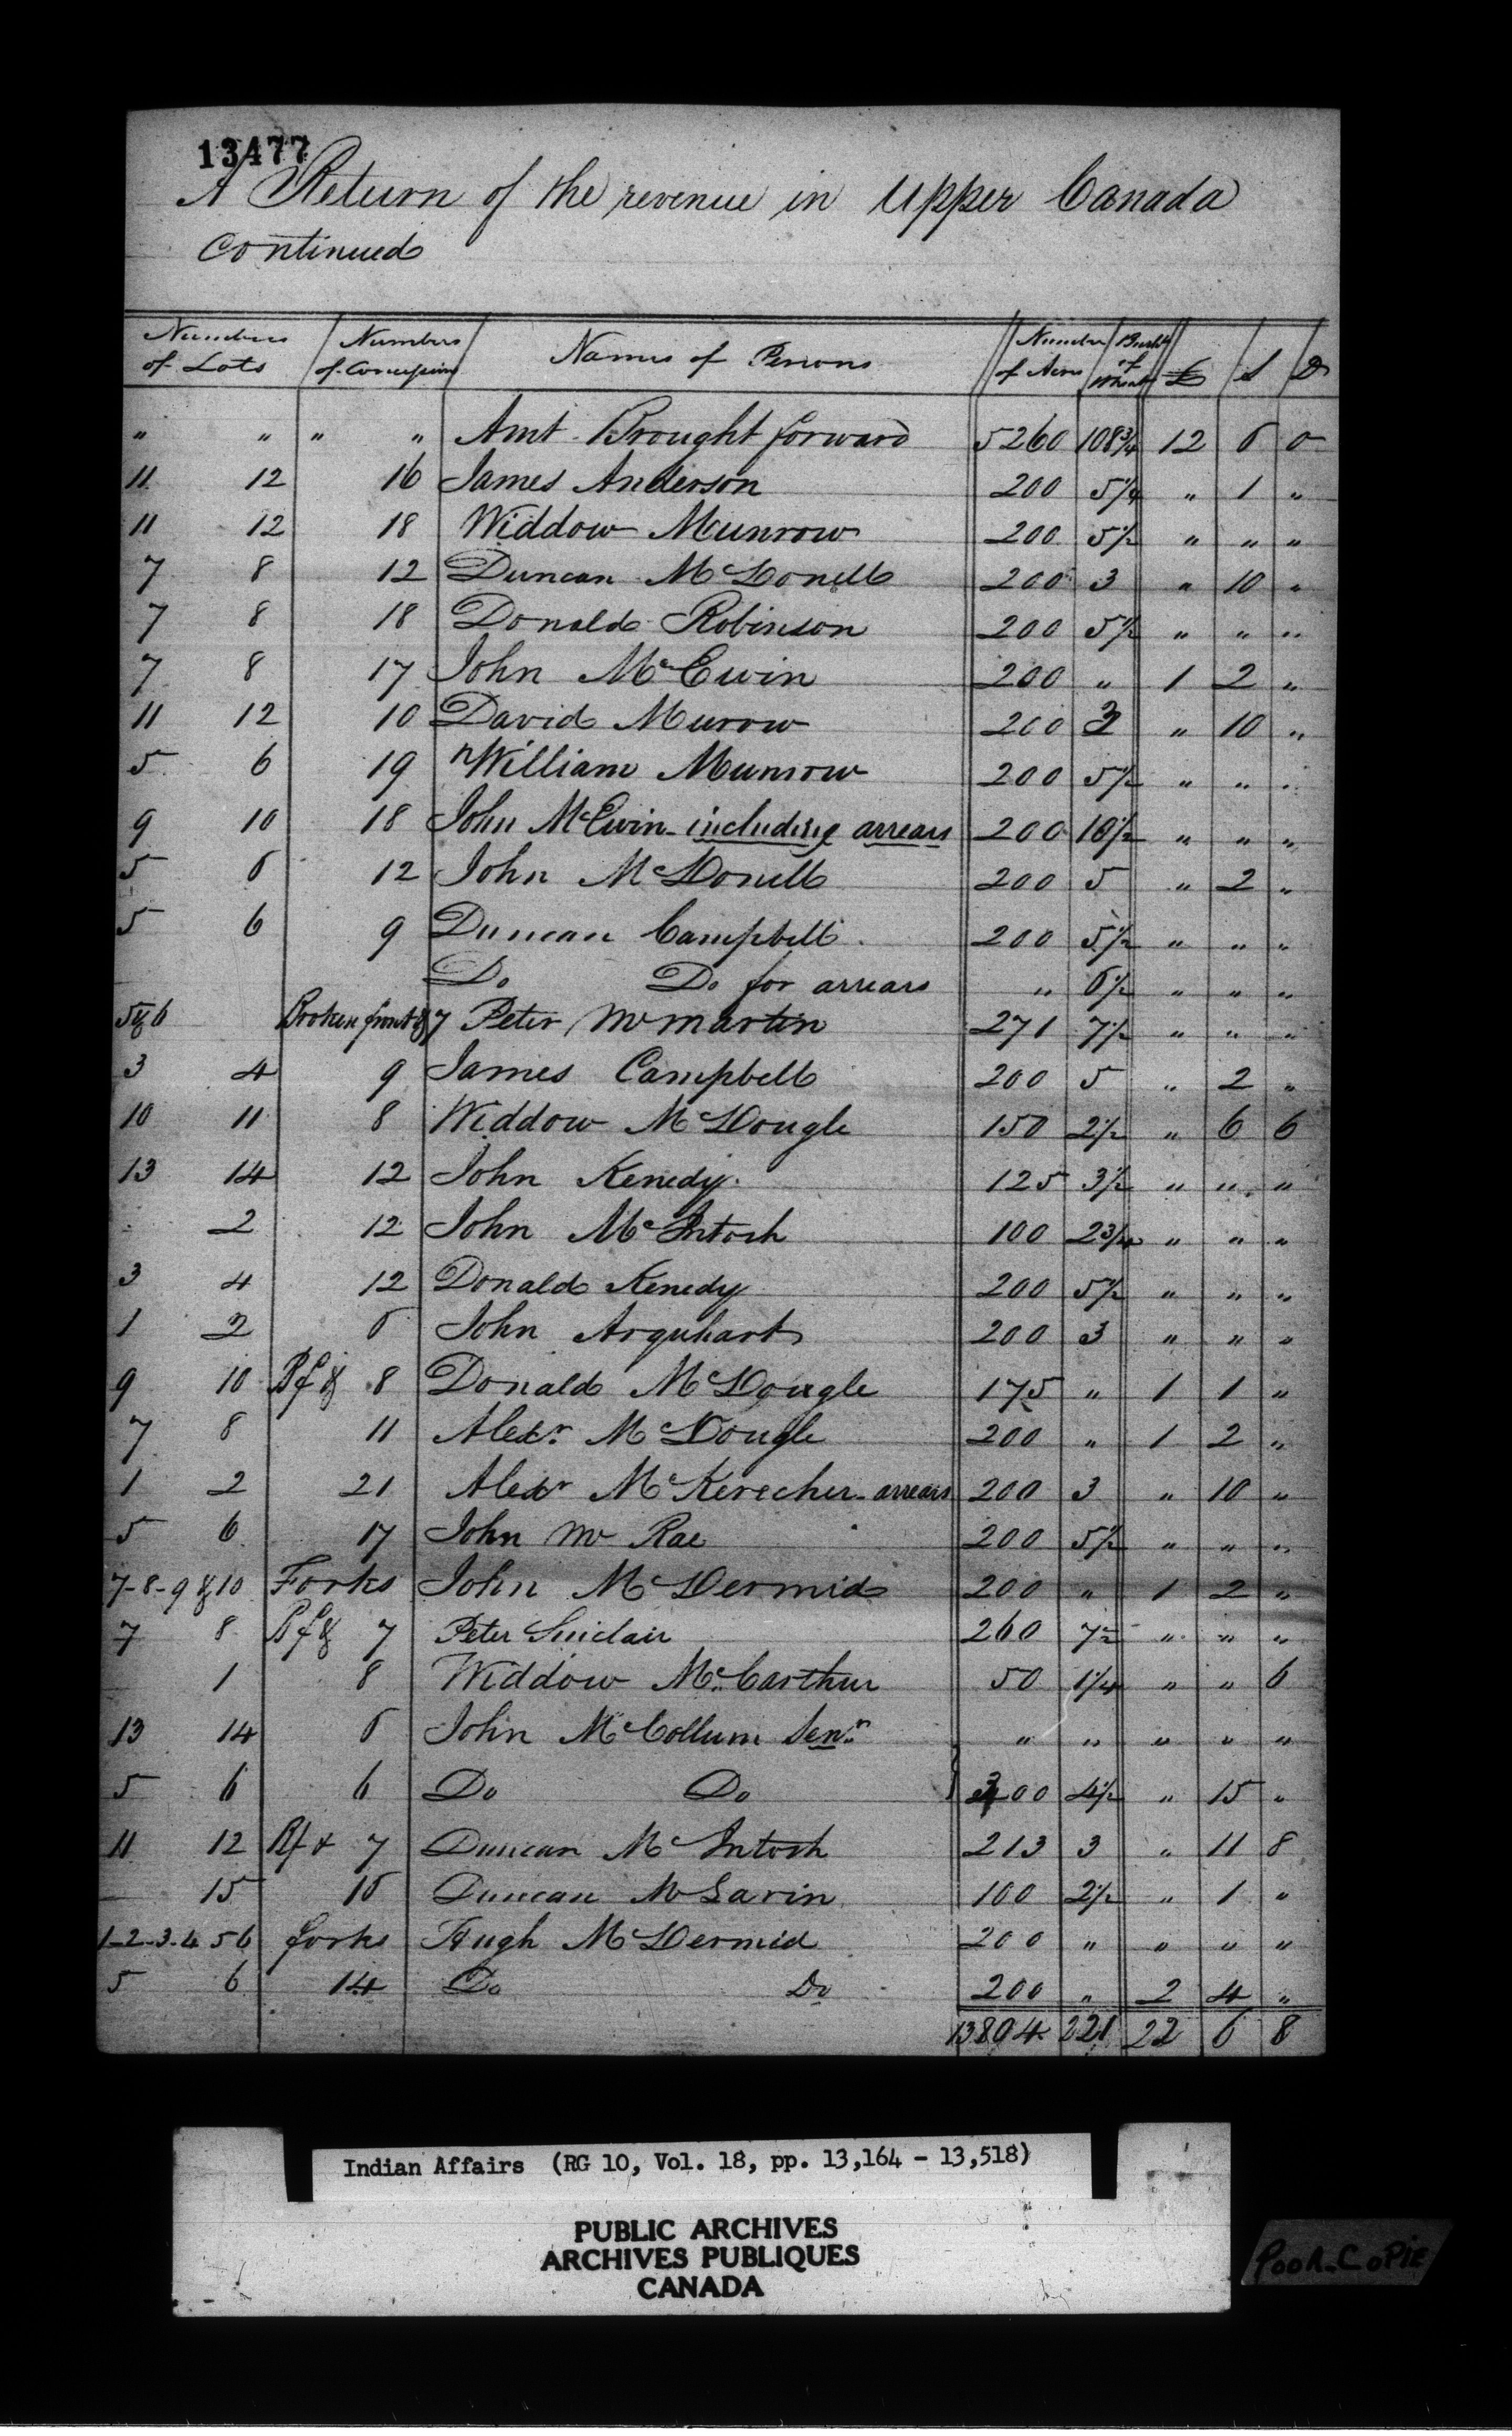 13477
A Return of the revenue in Upper Canada
Continued
Numbers of Lots Numbers of Concessions Names of Persons Number of Acres Bushls of Wheat £ S D
" " " " Amt Brought forward 5260 108¾ 12 6 0
11 12 16 James Anderson 200 5¼ " 1 "
11 12 18 Widdow Munrow 200 5½ " " "
7 8 12 Duncan McDonell 200 3 " 10 "
7 8 18 Donald Robinson 200 5½ " " "
7 8 17 John McEwin 200 " 1 2 "
11 12 10 David Murow 200 3 " 10 "
5 6 19 William Munrow 200 5½ " " "
9 10 18 John McEwin including arrears 200 10½ " " "
5 6 12 John McDonell 200 5 " 2 "
5 6 9 Duncan Campbell 200 5½ " " "
Do Do for arrears " 6½ " " "
5&6 Broken front & 7 Peter McMartin 271 7½ " " "
3 4 9 James Campbell 200 5 " 2 "
10 11 8 Widdow McDougle 150 2½ " 6 6
13 14 12 John Kenedy 125 3½ " " "
2 12 John McIntosh 100 2¾ " " "
3 4 12 Donald Kenedy 200 5½ " " "
1 2 6 John Arquhart 200 3 " " "
9 10 Bf & 8 Donald McDougle 175 " 1 1 "
7 8 11 Alexr McDougle 200 " 1 2 "
1 2 21 Alexr McKerecher arrears 200 3 " 10 "
5 6 17 John Mc Rae 200 5½ " " "
7-8-9 & 10 Forks John McDermid 200 " 1 2 "
7 8 Bf & 7 Peter Sinclair 260 7½ " " "
1 8 Widdow McCarthur 50 1¼ " " 6
13 14 6 John McCollum Senr " " " " "
5 6 6 Do Do 300 4½ " 15 "
11 12 Bf & 7 Duncan McIntosh 213 3 " 11 8
15 16 Duncan McLarin 100 2½ " 1 "
1-2-3-4 5 6 forks Hugh McDermid 200 " " " "
5 6 14 Do Do 200 " 2 4 "
13804 221 22 6 8
Indian Affairs (RG 10, Vol. 18, pp. 13,164 - 13,518)
PUBLIC ARCHIVES
ARCHIVES PUBLIQUES
CANADA
POOR COPIE